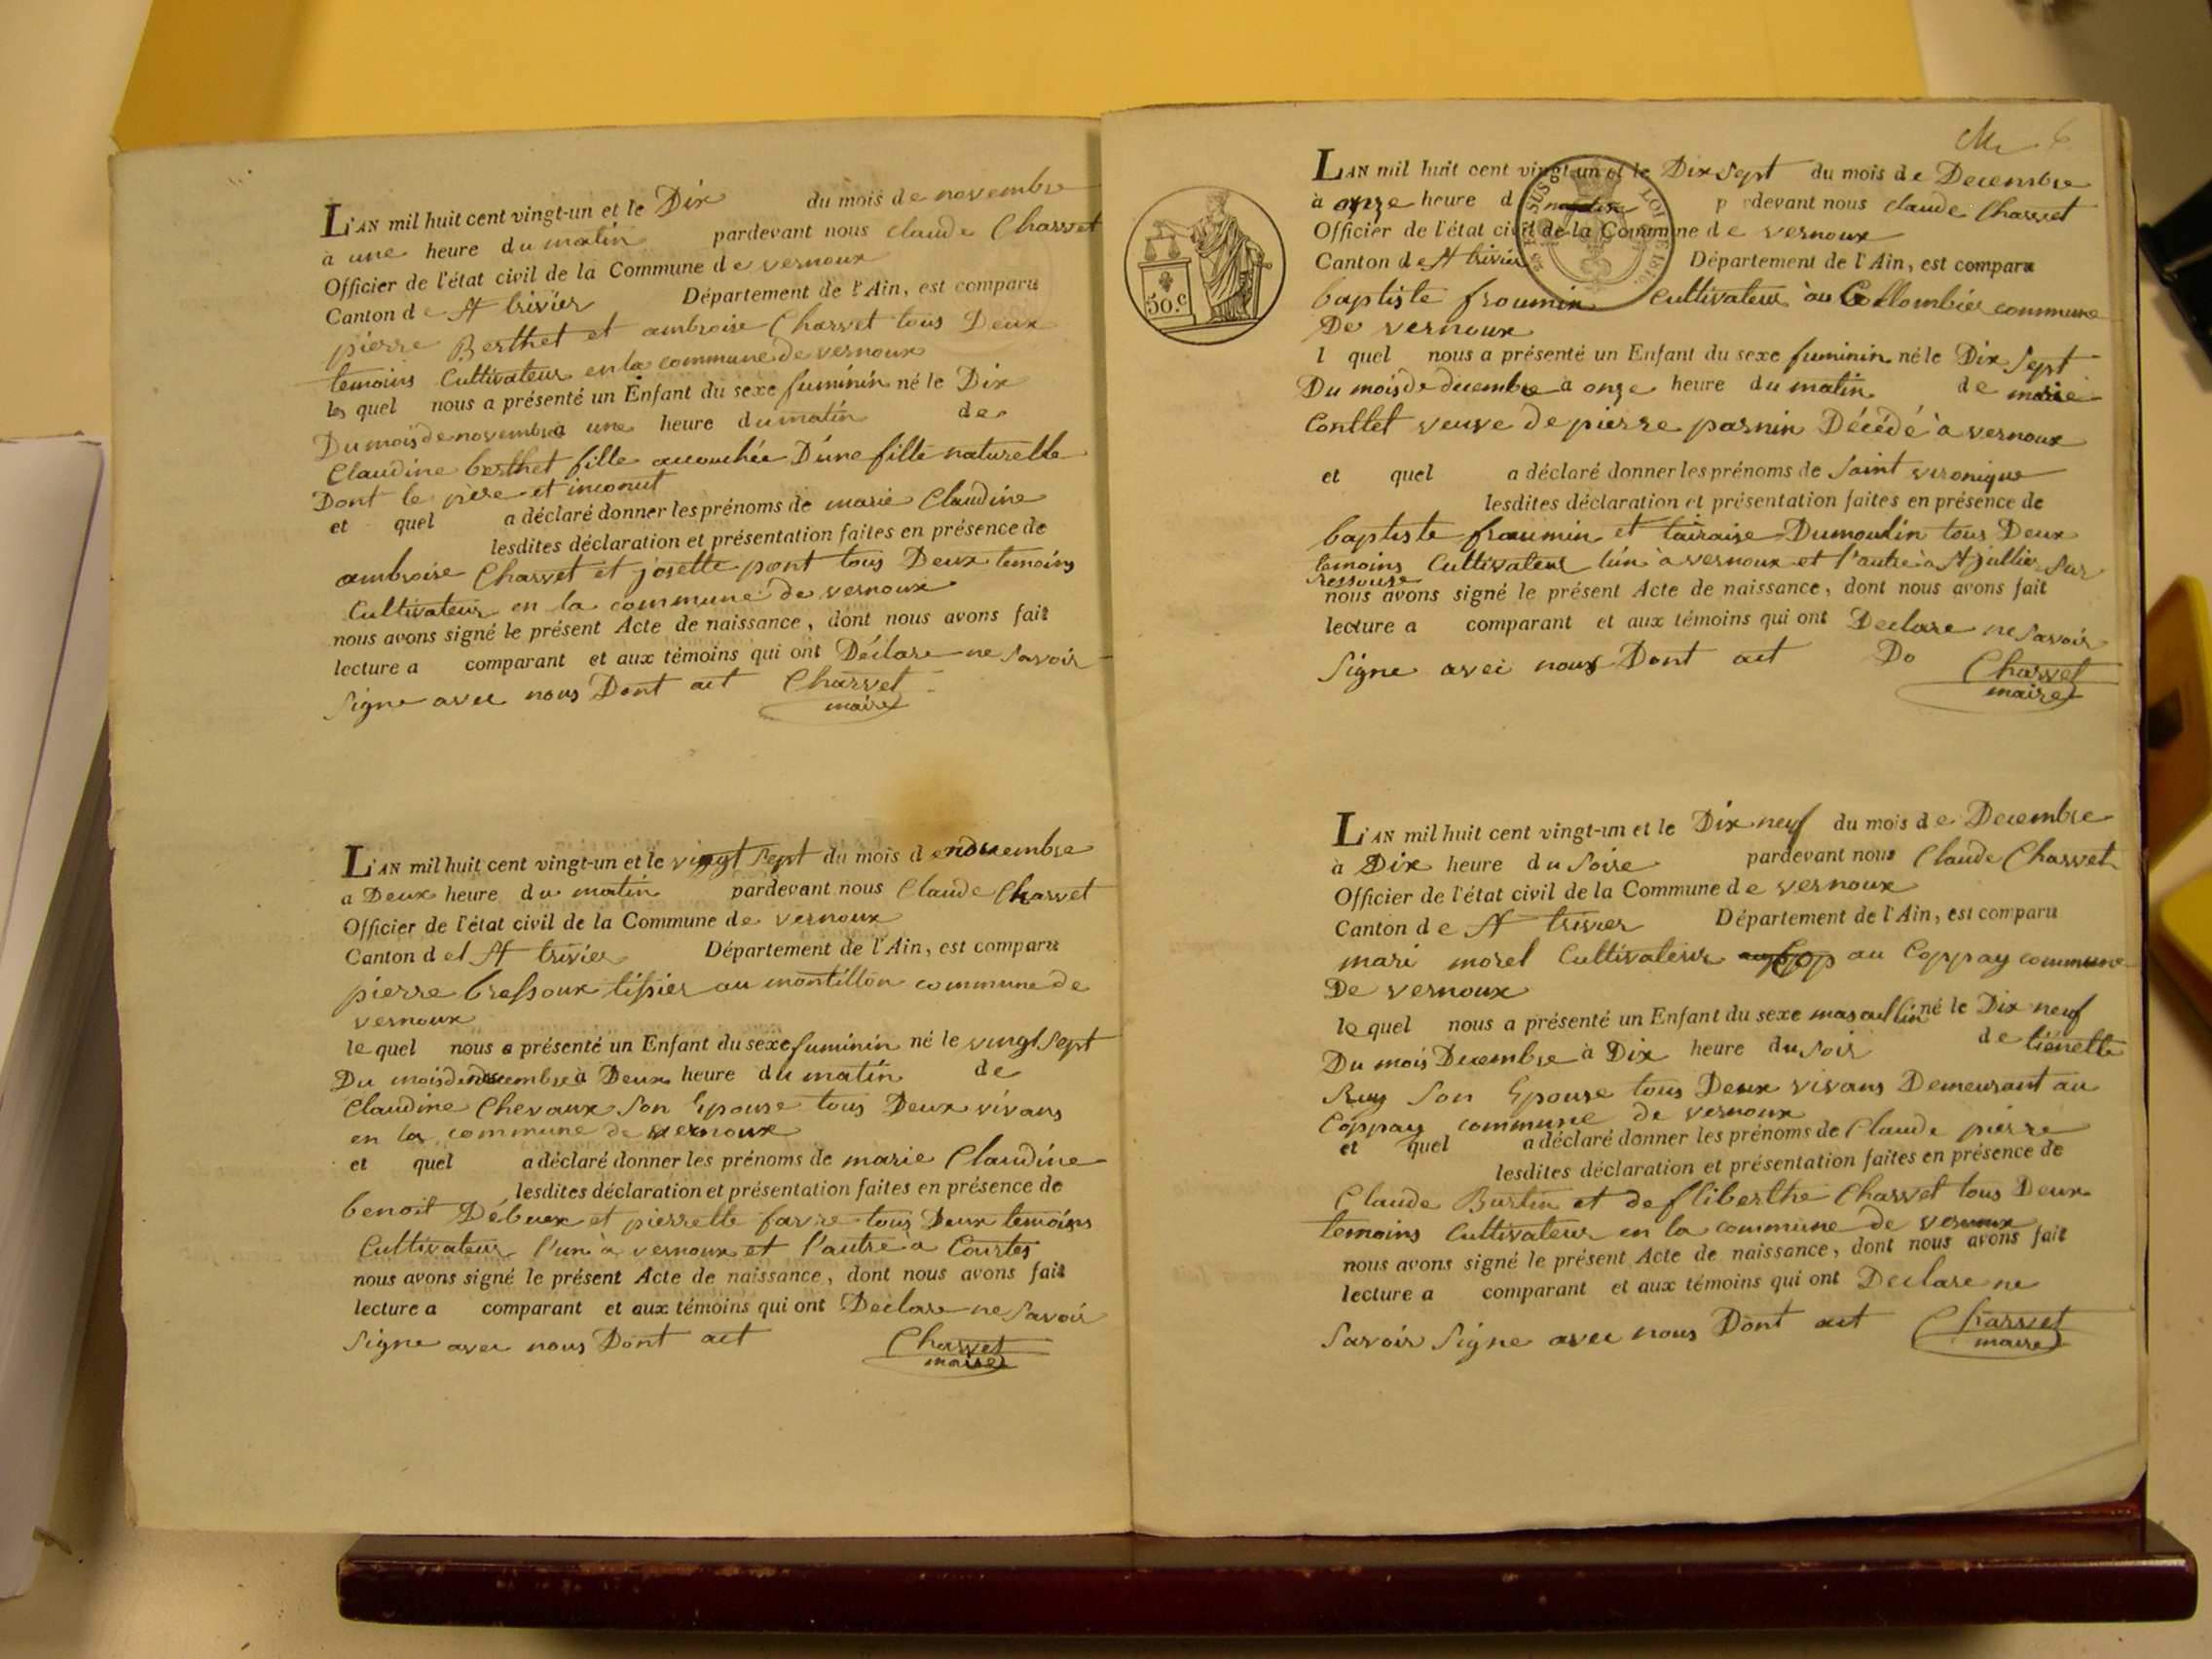 L'AN mil huit cent vingt-un et le Dix du mois de novembre
a une heure du matin pardevant nous claude Charvet
Officier de l'état civil de la Commune de vernoux
Canton de St trivier Département de l'Ain, est comparu
pierre Berthet et ambroise Charvet tous Deux
temoins Cultivateur en la commune de vernoux
les quel nous a présenté un Enfant du sexe fuminin né le Dix
Du mois de novembre a une heure du matin de
Claudine berthet fille acouchée D'une fille naturelle
Dont le père et inconut
et quel a déclaré donner les prénoms de marie Claudine
lesdites déclaration et présentation faites en présence de
ambroise Charvet et josette pont tous Deux temoins
Cultivateur en la commune de vernoux
nous avons signé le présent Acte de naissance, dont nous avons fait
lecture a comparant et aux témoins qui ont Déclare ne savoir
Signe avec nous Dont act Charvet
maire
L'AN mil huit cent vingt-un et le vingt Sept du mois de novembre
a Deux heure du matin pardevant nous Claude Charvet
Officier de l'état civil de la Commune de vernoux
Canton de St trivier Département de l'Ain, est comparu
pierre bressoux tissier au montillon commune de
vernoux
le quel nous a présenté un Enfant du sexe fuminin né le vingt Sept
Du mois de novembre a Deux heure du matin de
Claudine Chevaux Son Epouse tous Deux vivans
en la commune de vernoux
et quel a déclaré donner les prénoms de marie Claudine
lesdites déclaration et présentation faites en présence de
benoit Débuer et pierrette favre tous Deux temoins
Cultivateur l'un à vernoux et l'autre à Courtes
nous avons signé le présent Acte de naissance, dont nous avons fait
lecture a comparant et aux témoins qui ont Declare ne Savoir
Signe avec nous Dont act Charvet
maire
6
L'AN mil huit cent vingt-un et le Dix Sept du mois de Decembre
à onze heure d matin pardevant nous claude Charvet
Officier de l'état civil de la Commune de vernoux
Canton de St trivier Département de l'Ain, est comparu
50.c
LOI
baptiste froumin Cultivateur au Collombier commune
De vernoux
l quel nous a présenté un Enfant du sexe fuminin né le Dix Sept
Du mois de decembre a onze heure du matin de marie
Conttet veuve de pierre parnin Décédé à vernoux
et quel a déclaré donner les prénoms de Saint veronique
lesdites déclaration et présentation faites en présence de
baptiste fraumin et tairaise Dumoulin tous Deux
temoins Cultivateur lun à vernoux et l'autre à St jullier Sur
ressouse
nous avons signé le présent Acte de naissance, dont nous avons fait
lecture a comparant et aux témoins qui ont Declare ne Savoir
Signe avec nous Dont act Do Charvet
maire
L'AN mil huit cent vingt-un et le Dix neuf du mois de Decembre
à Dix heure du Soire pardevant nous Claude Charvet
Officier de l'état civil de la Commune de vernoux
Canton de St trivier Département de l'Ain, est comparu
mari morel Cultivateur au Coppay commune
De vernoux
le quel nous a présenté un Enfant du sexe mascullin né le Dix neuf
Du mois Decembre à Dix heure du Soir de tienette
Ruy Son Epouse tous Deux vivans Demeurant au
Coppay commune de vernoux
et quel a déclaré donner les prénoms de Claude pierre
lesdites déclaration et présentation faites en présence de
Claude Burtin et de fliberthe Charvet tous Deux
temoins Cultivateur en la commune de vernoux
nous avons signé le présent Acte de naissance, dont nous avons fait
lecture a comparant et aux témoins qui ont Declare ne
Savoir Signe avec nous Dont act Charvet
maire